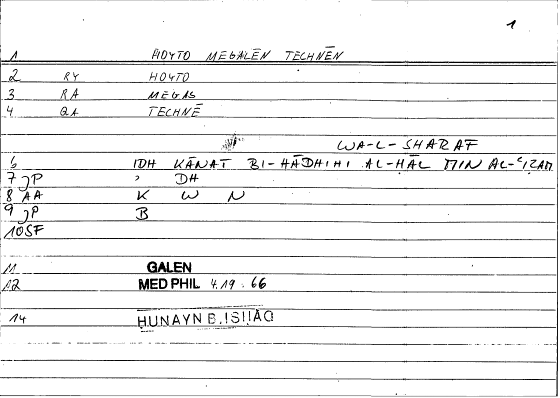 1
1 HOYTO MEGALĒN TECHNĒN
2 RY HOYTO
3 RA MEGAS
4 QA TECHNĒ
WA-L-SHARAF
6 IDH KĀNAT BI-HĀDHIHI AL-HĀL MIN AL-ʿIZAM
7 JP ʾ DH
8 AA K W N
9 JP B
10 SF
11 GALEN
12 MED PHIL 4.19.66
14 HUNAYN B. ISHAQ